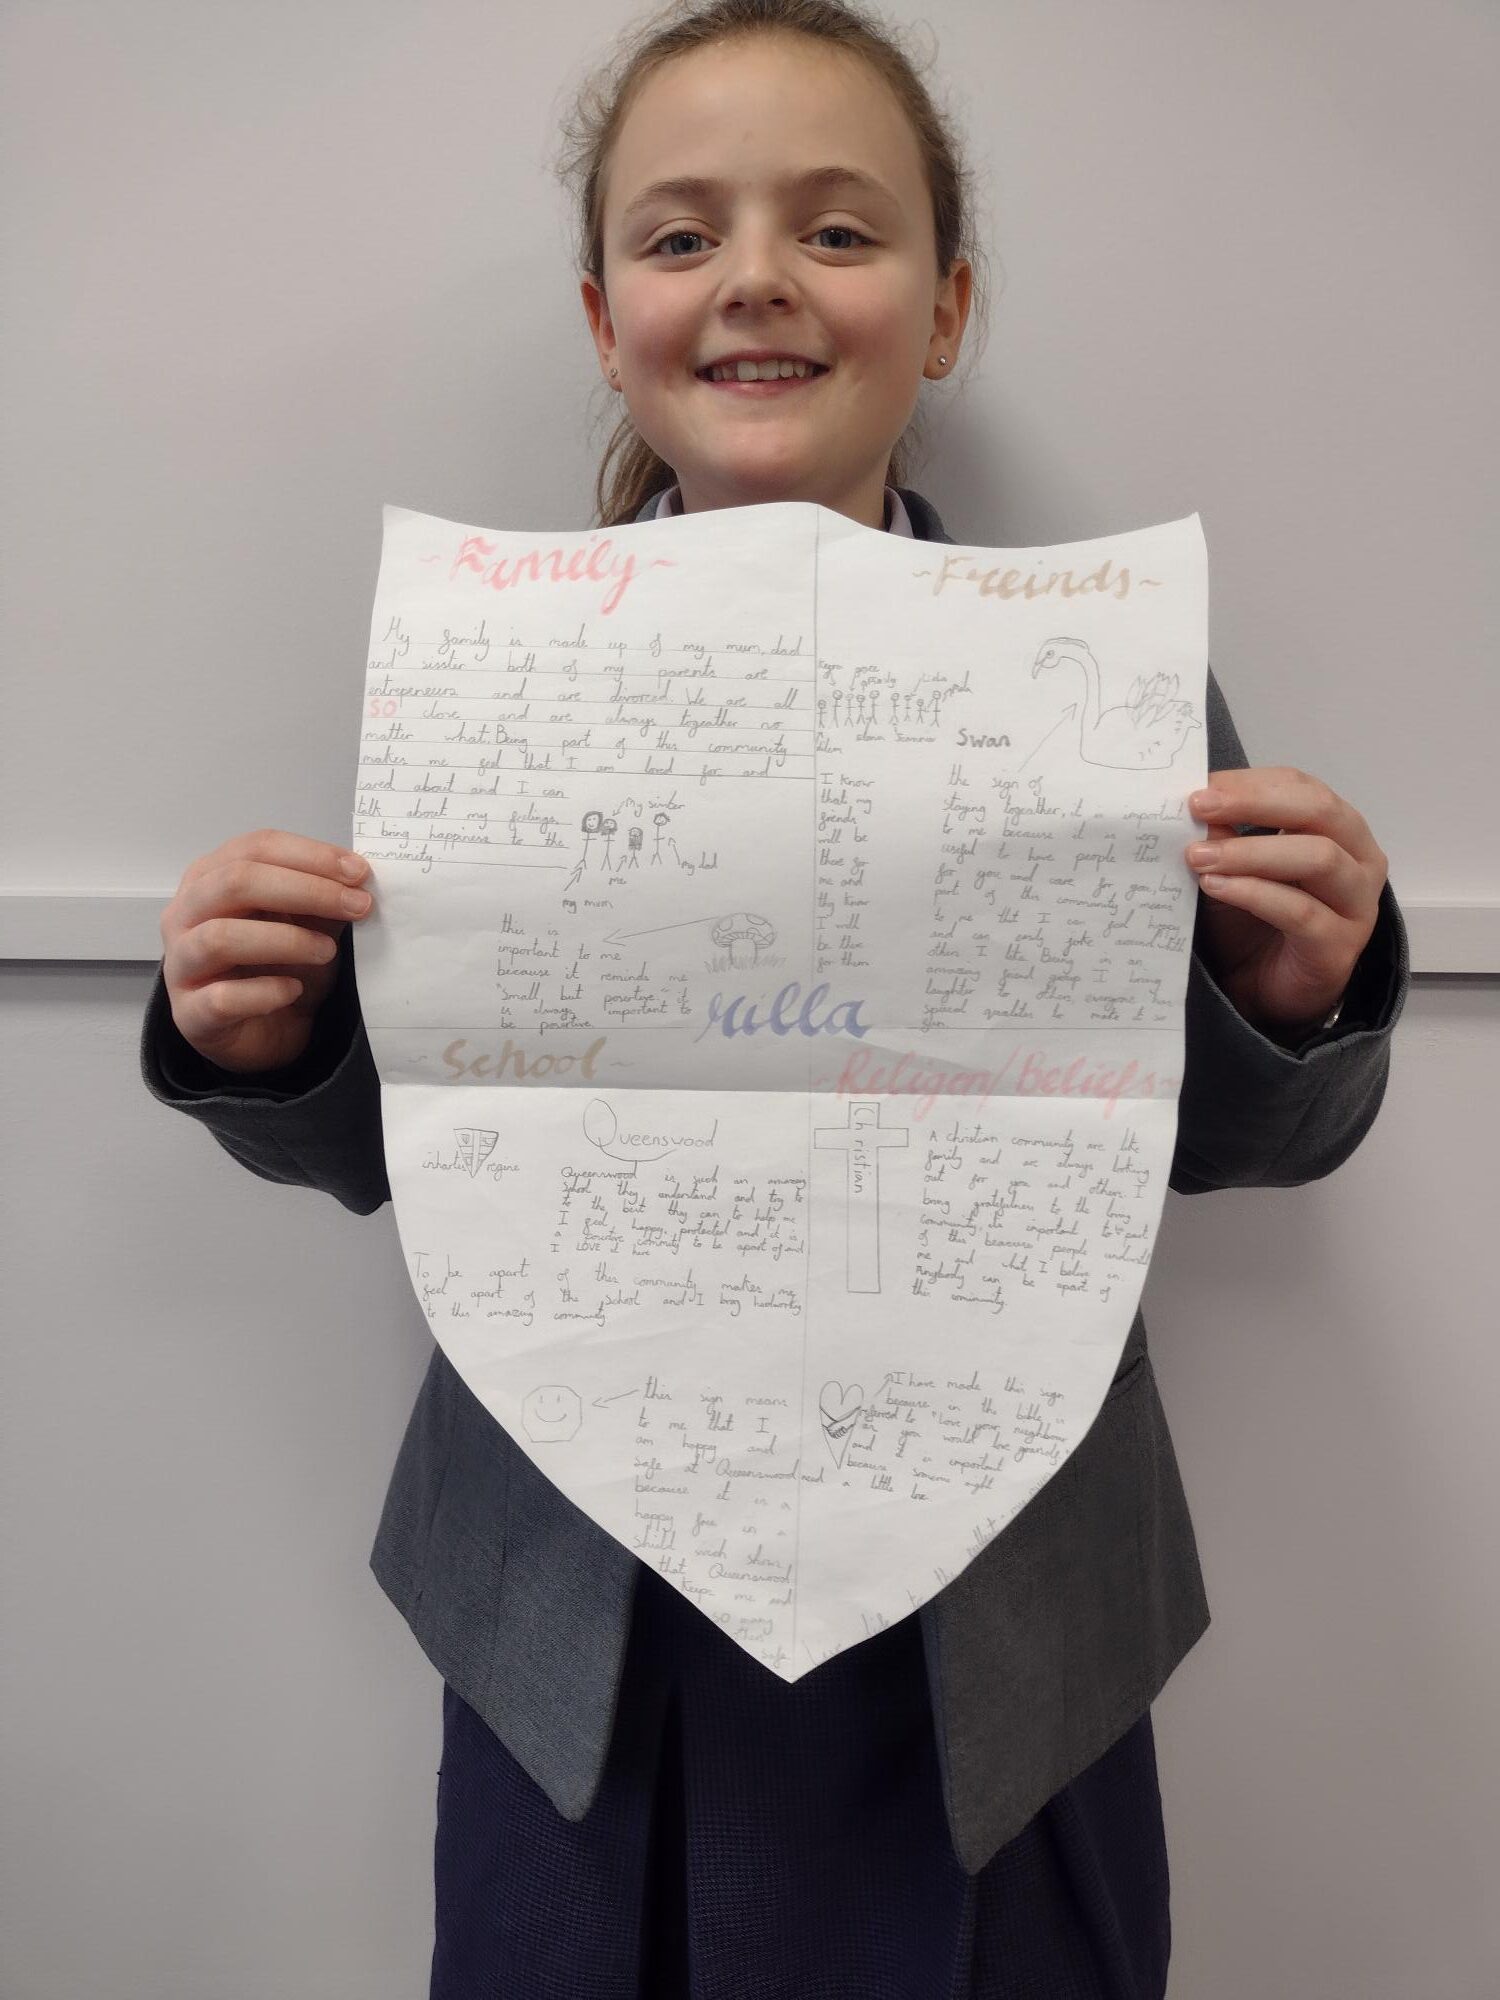 ~Family~
My family is made up of my mum, dad
and sisster both of my parents are
entrepeneurs and are divorced. We are all
SO close and are always togeather no
matter what. Being part of this community
makes me feel that I am loved for and
cared about and I can
talk about my feelings.
I bring happiness to the
community.
my sisster
my dad
me
my mum
this is
important to me
because it reminds me
"Small but posertive" it
is always important to
be posertive.
~Freinds~
Swan
I know
that my
friends
will be
there for
me and
thy know
I will
be there
for them
the sign of
staying togeather, it is important
to me because it is very
useful to have people there
for you and care for you, being
part of this community means
to me that I can feel happy
and can easily joke around with
others. I like Being in an
amazing friend group I bring
laughter to others, everyone has
special qualites to make it so
fun.
~School~
Queenswood
regine
Queenswood is such an amazing
School they understand and try to
to the best they can to help me
I feel happy, protected and it is
a posertive commity to be apart of and
I LOVE it here
To be apart of this community makes me
feel apart of the School and I brng hardworking
to this amazing community
this sign means
to me that I
am happy and
safe at Queenswood
because it is a
happy face in a
Shield wich shows
that Queenswood
keeps me and
so many
others
safe
~Religon/Beliefs~
Christian
A christian community are like
family and are always looking
out for you and others. I
bring gratefulness to the loving
community, its important to be part
of this beacuse people
me and what I belive in.
Anybody can be apart of
this comunity.
I have made this sign
because in the bible is
referred to "love your nieghbour
as you would love
and it is important
because someone might
need a little love
Live life to the fullest